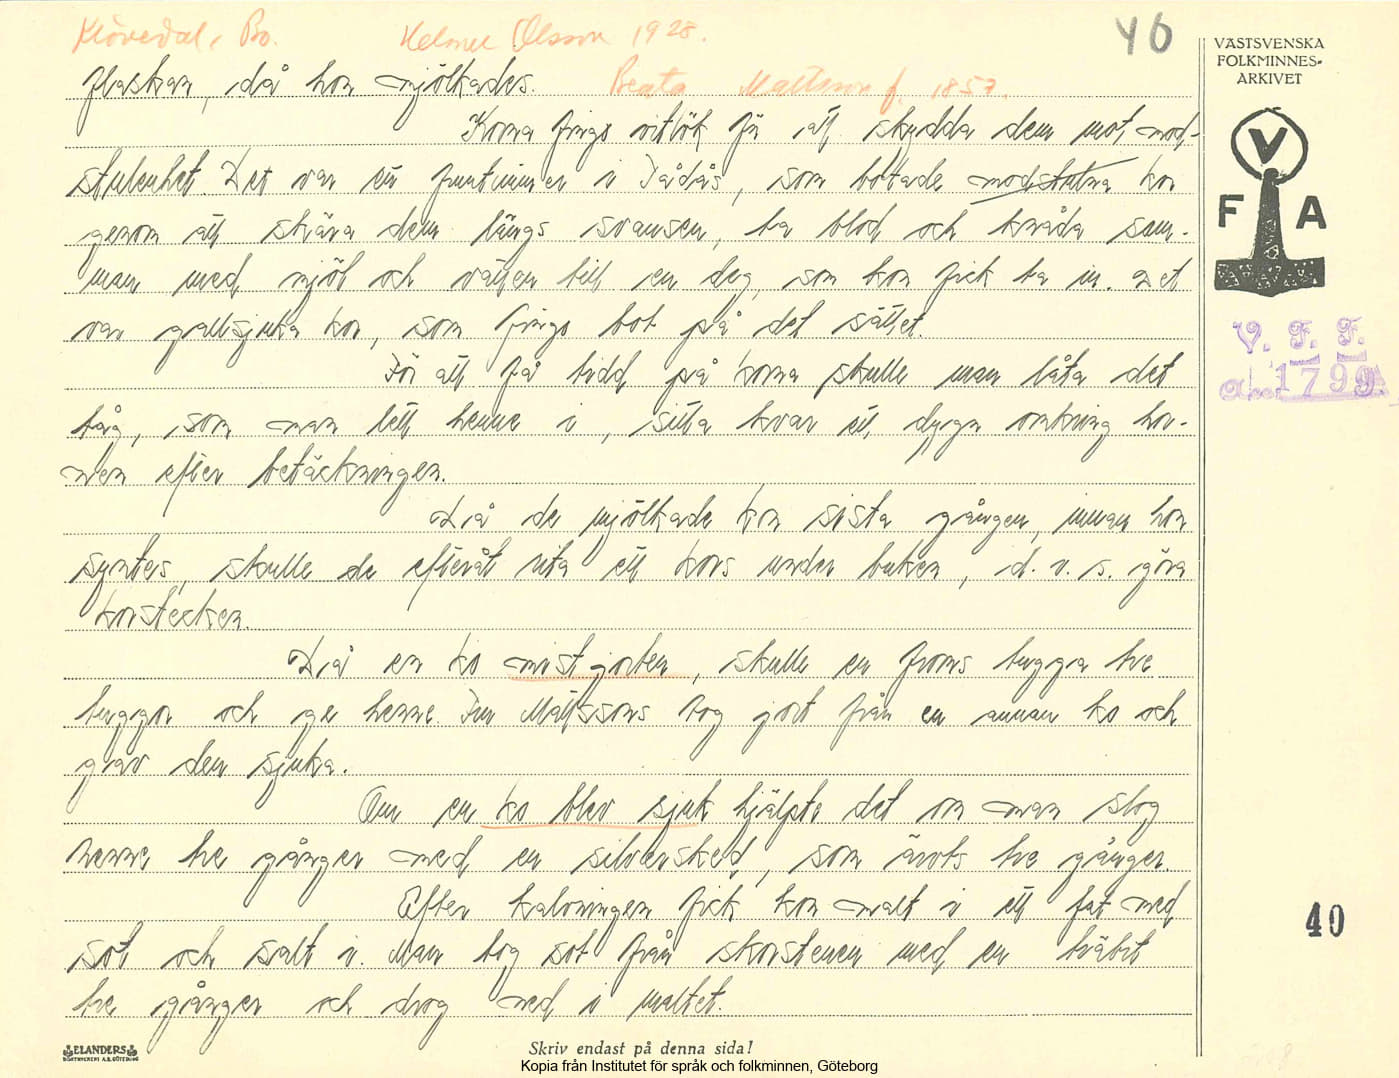 Klövedal, Bo.
Helmer Olsson 1928.
40
VÄSTSVENSKA
FOLKMINNES-
ARKIVET
flaskan, då hon mjölkades.
Beata Mattsson f. 1857.
Korna fingo vitlök för att skydda dem mot mod-
stulenhet. Det var en fruntimmer i Tådås, som botade modstulna kor
genom att skära dem längs svansen, ta blod och knåda sam-
man med mjöl och vatten till en deg, som kon fick ta in. Det
var gallsjuka kor, som fingo bot på det sättet.
För att få tidd på korna skulle man låta det
tåg, som man lett henne i, sitta kvar ett dygn omkring hor-
nen efter betäckningen.
Då de mjölkade kon sista gången, innan hon
syntes, skulle de efteråt rita ett kors under buken, d. v. s. göra
korstecken.
Då en ko mist jorten, skulle en frans tugga tre
tuggor och ge henne. Fru Mattssons tog jort från en annan ko och
gav den sjuka.
Om en ko blev sjuk hjälpte det om man slog
henne tre gånger med en silversked, som ärvts tre gånger.
Efter kalvningen fick kon malt i ett fat med
sot och salt i. Man tog sot från skorstenen med en träbit
tre gånger och drog ned i maltet.
V
F A
V. F. F.
1799
40
ELANDERS
BOKTRYCKERI A.B. GÖTEBORG
Skriv endast på denna sida!
Kopia från Institutet för språk och folkminnen, Göteborg